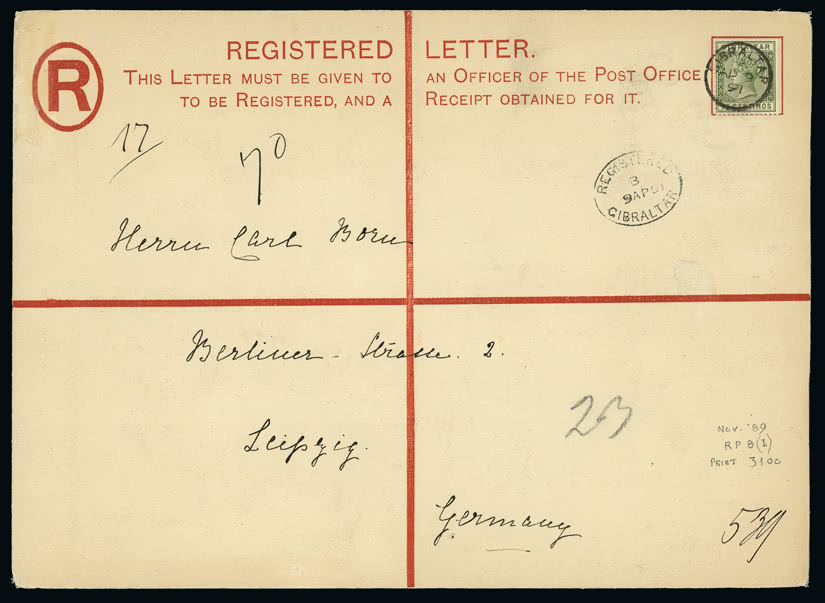 REGISTERED LETTER.
THIS LETTER MUST BE GIVEN TO AN OFFICER OF THE POST OFFICE
TO BE REGISTERED, AND A RECEIPT OBTAINED FOR IT.
R
17/
70
REGISTERED
B
9 AP 91
GIBRALTAR
Herrn Carl Born
Berliner-Strasse. 2.
Leipzig.
Germany
NOV. '89
R P 8 (1)
PRINT 3100
539